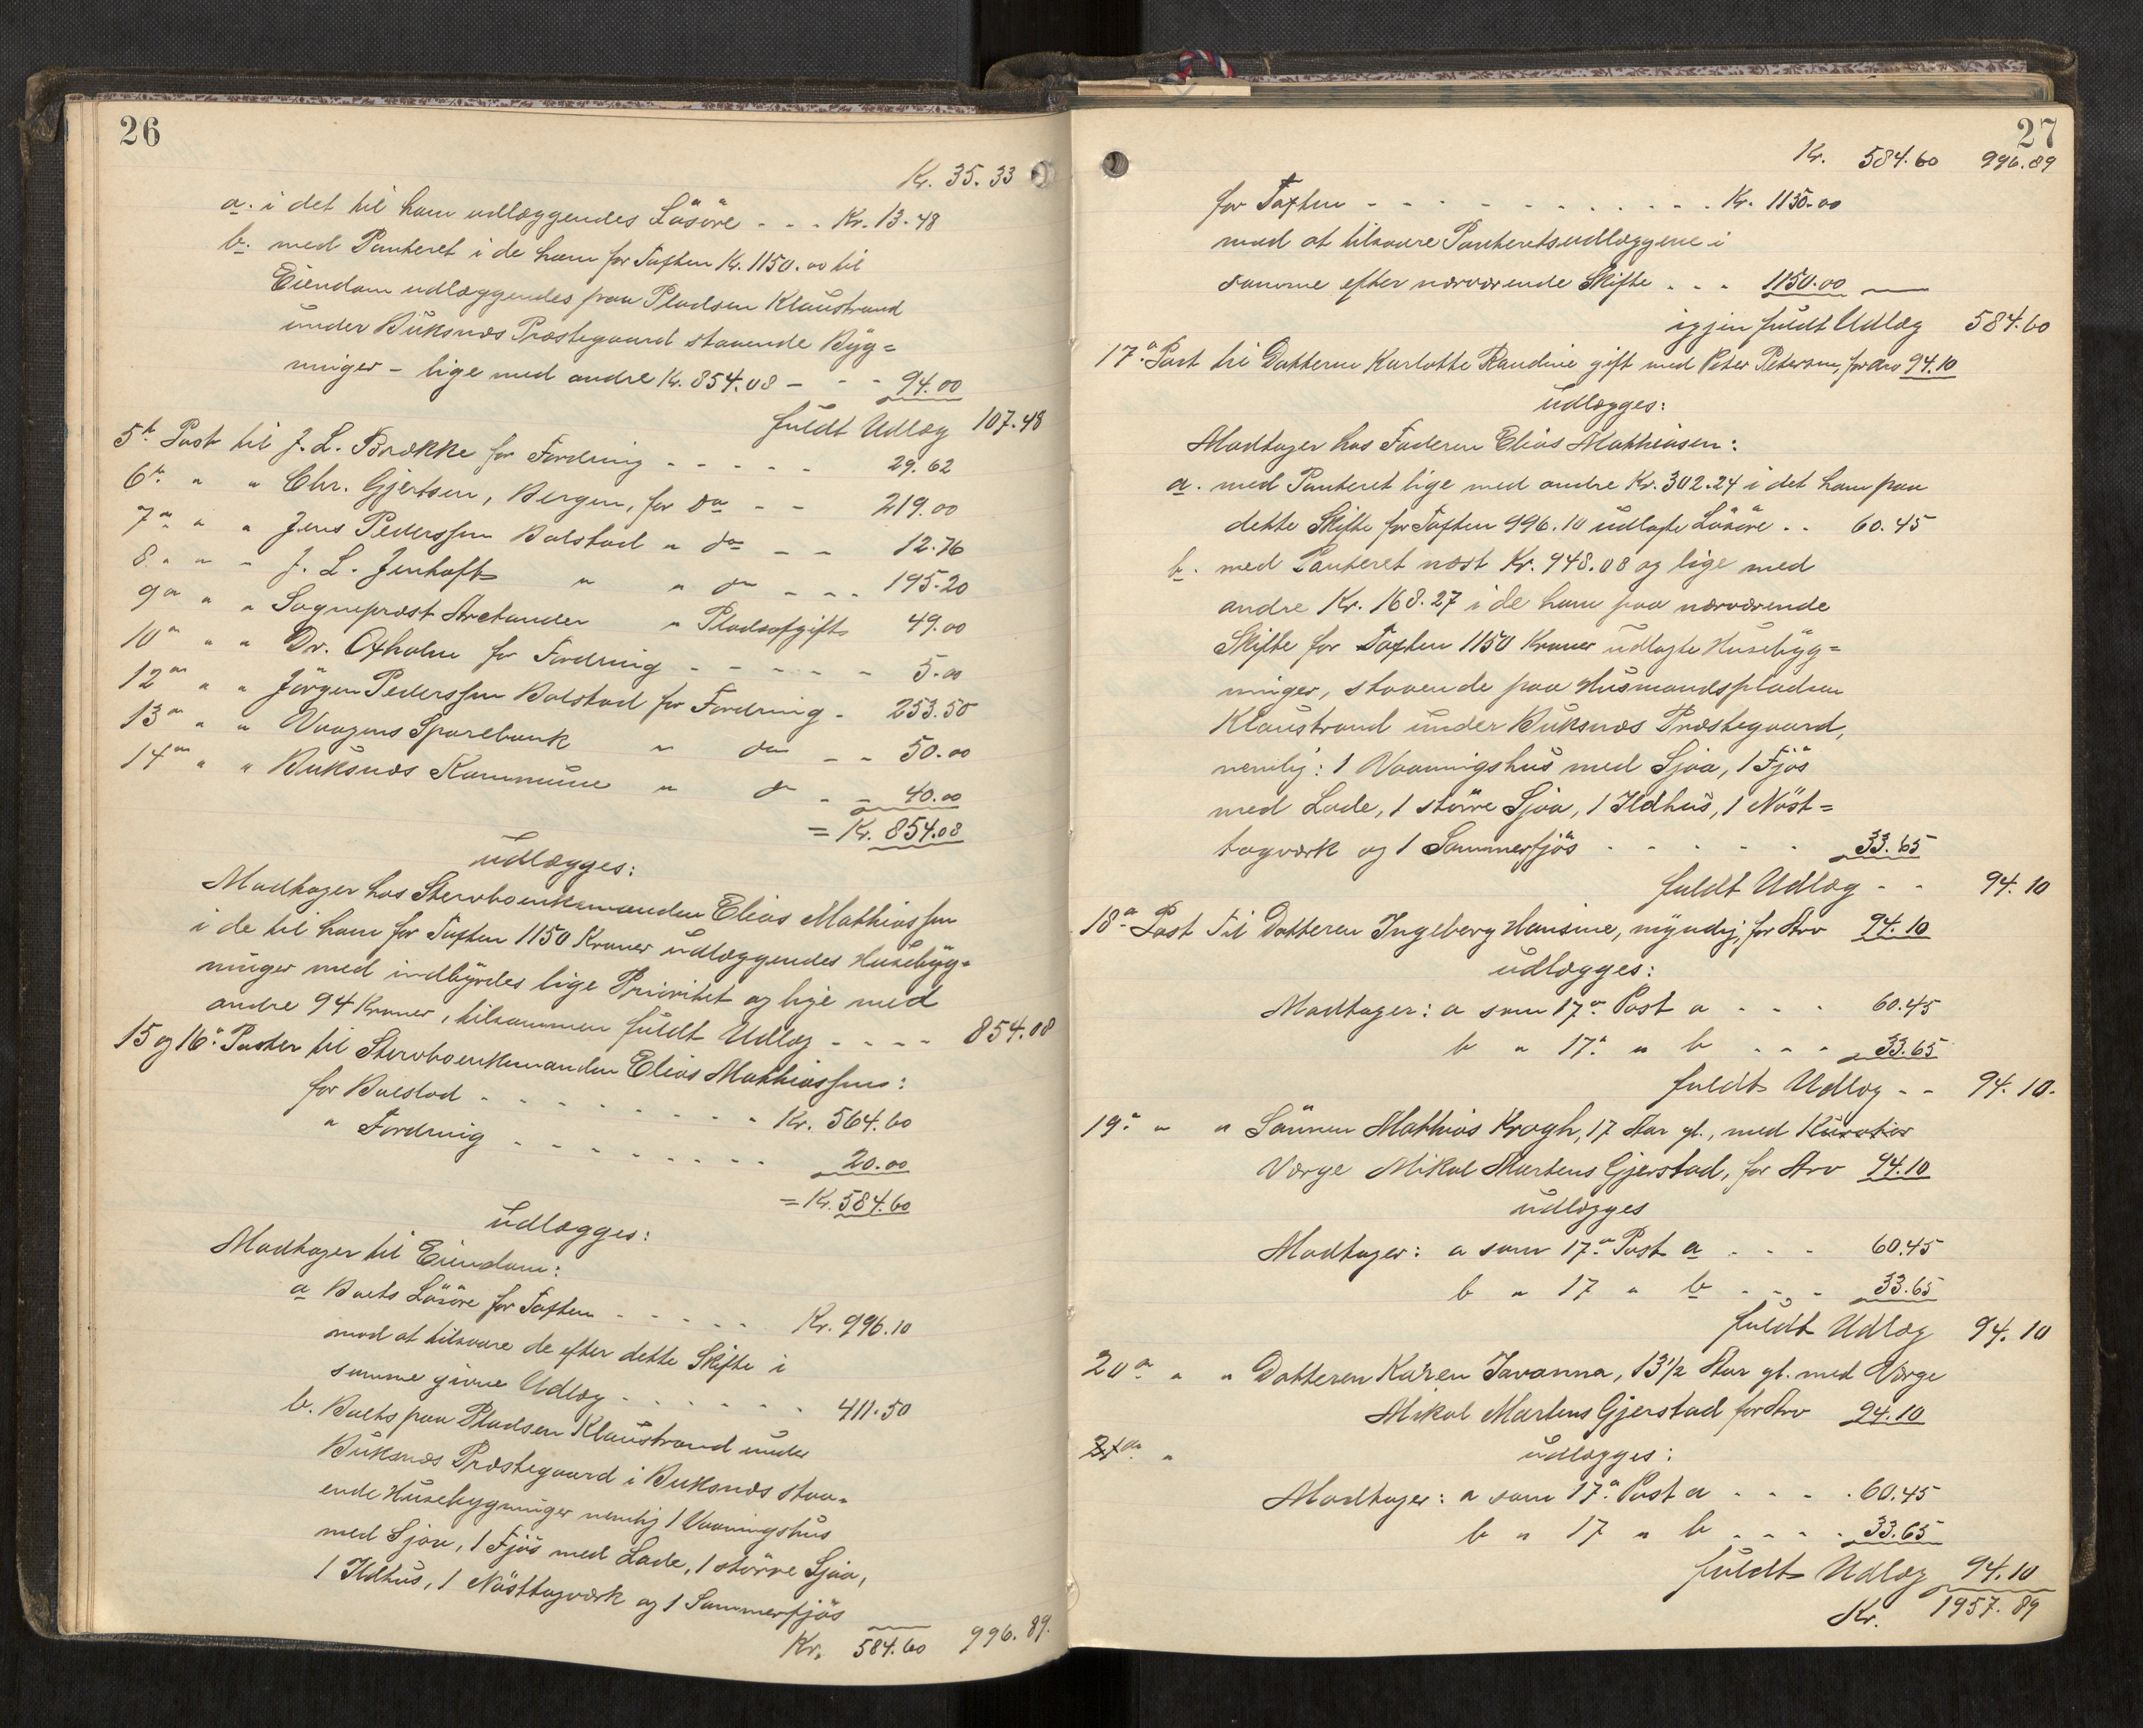 26
Kr. 35.33
a. i det til ham udlæggendes Lösöre - - - Kr. 13.48
b. med Panteret i de ham for Taxten Kr. 1150.00 til
Eiendom udlæggendes paa Pladsen Klaustrand
under Buksnæs Præstegaard staaende Byg=
ninger - lige med andre Kr. 854.08 - - - 94.00
fuldt Udlæg 107.48
5te Post til J. L. Brække for Fordring - - - - - 29.62
6te " " Chr. Gjertsen, Bergen, for do - - 219.00
7de " " Jens Pederssen Balstad " do - - 12.76
8. " " J. L. Jenhoft " " do - - - 195.20
9de " " Sogneprest Arctander " Pladsafgift 49.00
10de " " Dr. Oxholm for Fordring - - - - - 5.00
12de " " Jörgen Pederssen Balstad for Fordring - 253.50
13de " " Vaagens Sparebank " do - - 50.00
14de " " Buksnæs Kommune " do - - 40.00
= Kr. 854.08
udlægges:
Modtager hos Stervboenkemanden Elias Mathiassen
i de til ham for Taxten 1150 Kroner udlæggendes Husebyg-
ninger med indbyrdes lige Prioritet og lige med
andre 94 Kroner, tilsammen fuldt Udlæg - - - - 854.08
15 og 16de Poster til Stervboenkemanden Elias Mathiassen:
for Boeslod - - - - - - - - - Kr. 564.60
" Fordring - - - - - - - - 20.00
= Kr. 584.60
udlægges:
Modtager til Eiendom:
a Boets Lösöre for Taxten - - - - - Kr. 996.10
mod at tilsvare de efter dette Skifte i
samme givne Udlæg - - - - - - - 411.50
b. Boets paa Pladsen Klaustrand under
Buksnæs Præstegaard i Buksnæs staa-
ende Husebygninger nemlig 1 Vaaningshus
med Sjaa, 1 Fjös med Lade, 1 större Sjaa,
1 Ildhus, 1 Nösttagværk og 1 Sommerfjös
Kr. 584.60 996.89.
27
Kr. 584.60 996.89
for Taxten - - - - - - - - - - - Kr. 1150.00
mod at tilsvare Panteretsudlæggene i
samme efter nærværende Skifte - - - 1150.00
igjen fuldt Udlæg 584.60
17de Post til Datteren Karlotte Raudine gift med Peter Petersen, for Arv 94.10
udlægges:
Modtager hos Faderen Elias Mathiasen:
a. med Panteret lige med andre Kr. 302.24 i det ham paa
dette Skifte for Taxten 996.10 udlagte Lösöre - - 60.45
b. med Panteret næst Kr. 948.08 og lige med
andre Kr. 168.27 i de ham paa nærværende
Skifte for Taxten 1150 Kroner udlagte Husebyg=
ninger, staaende paa Husmandspladsen
Klaustrand under Buksnæs Præstegaard,
nemlig: 1 Vaaningshus med Sjaa, 1 Fjös
med Lade, 1 större Sjaa, 1 Ildhus, 1 Nöst=
tagværk og 1 Sommerfjös - - - - - 33.65
fuldt Udlæg - - 94.10
18de Post til Datteren Ingeberg Hansine, myndig, for Arv 94.10
udlægges:
Modtager: a som 17de Post a - - - 60.45
b " 17de " b - - - 33.65
fuldt Udlæg - - 94.10.
19de " " Sönnen Mathias Krogh, 17 Aar gl., med Kurator
Værge Mikal Martens Gjerstad, for Arv 94.10
udlægges
Modtager: a som 17de Post a - - - 60.45
b " 17 " b - - - 33.65
fuldt Udlæg 94.10
20de " " Datteren Karen Javanna, 13½ Aar gl. med Værge
Mikal Martens Gjerstad for Arv 94.10
21de "
udlægges:
Modtager: a som 17de Post a - - - - 60.45
b " 17 " b - - - - 33.65
fuldt Udlæg 94.10
Kr. 1957.89